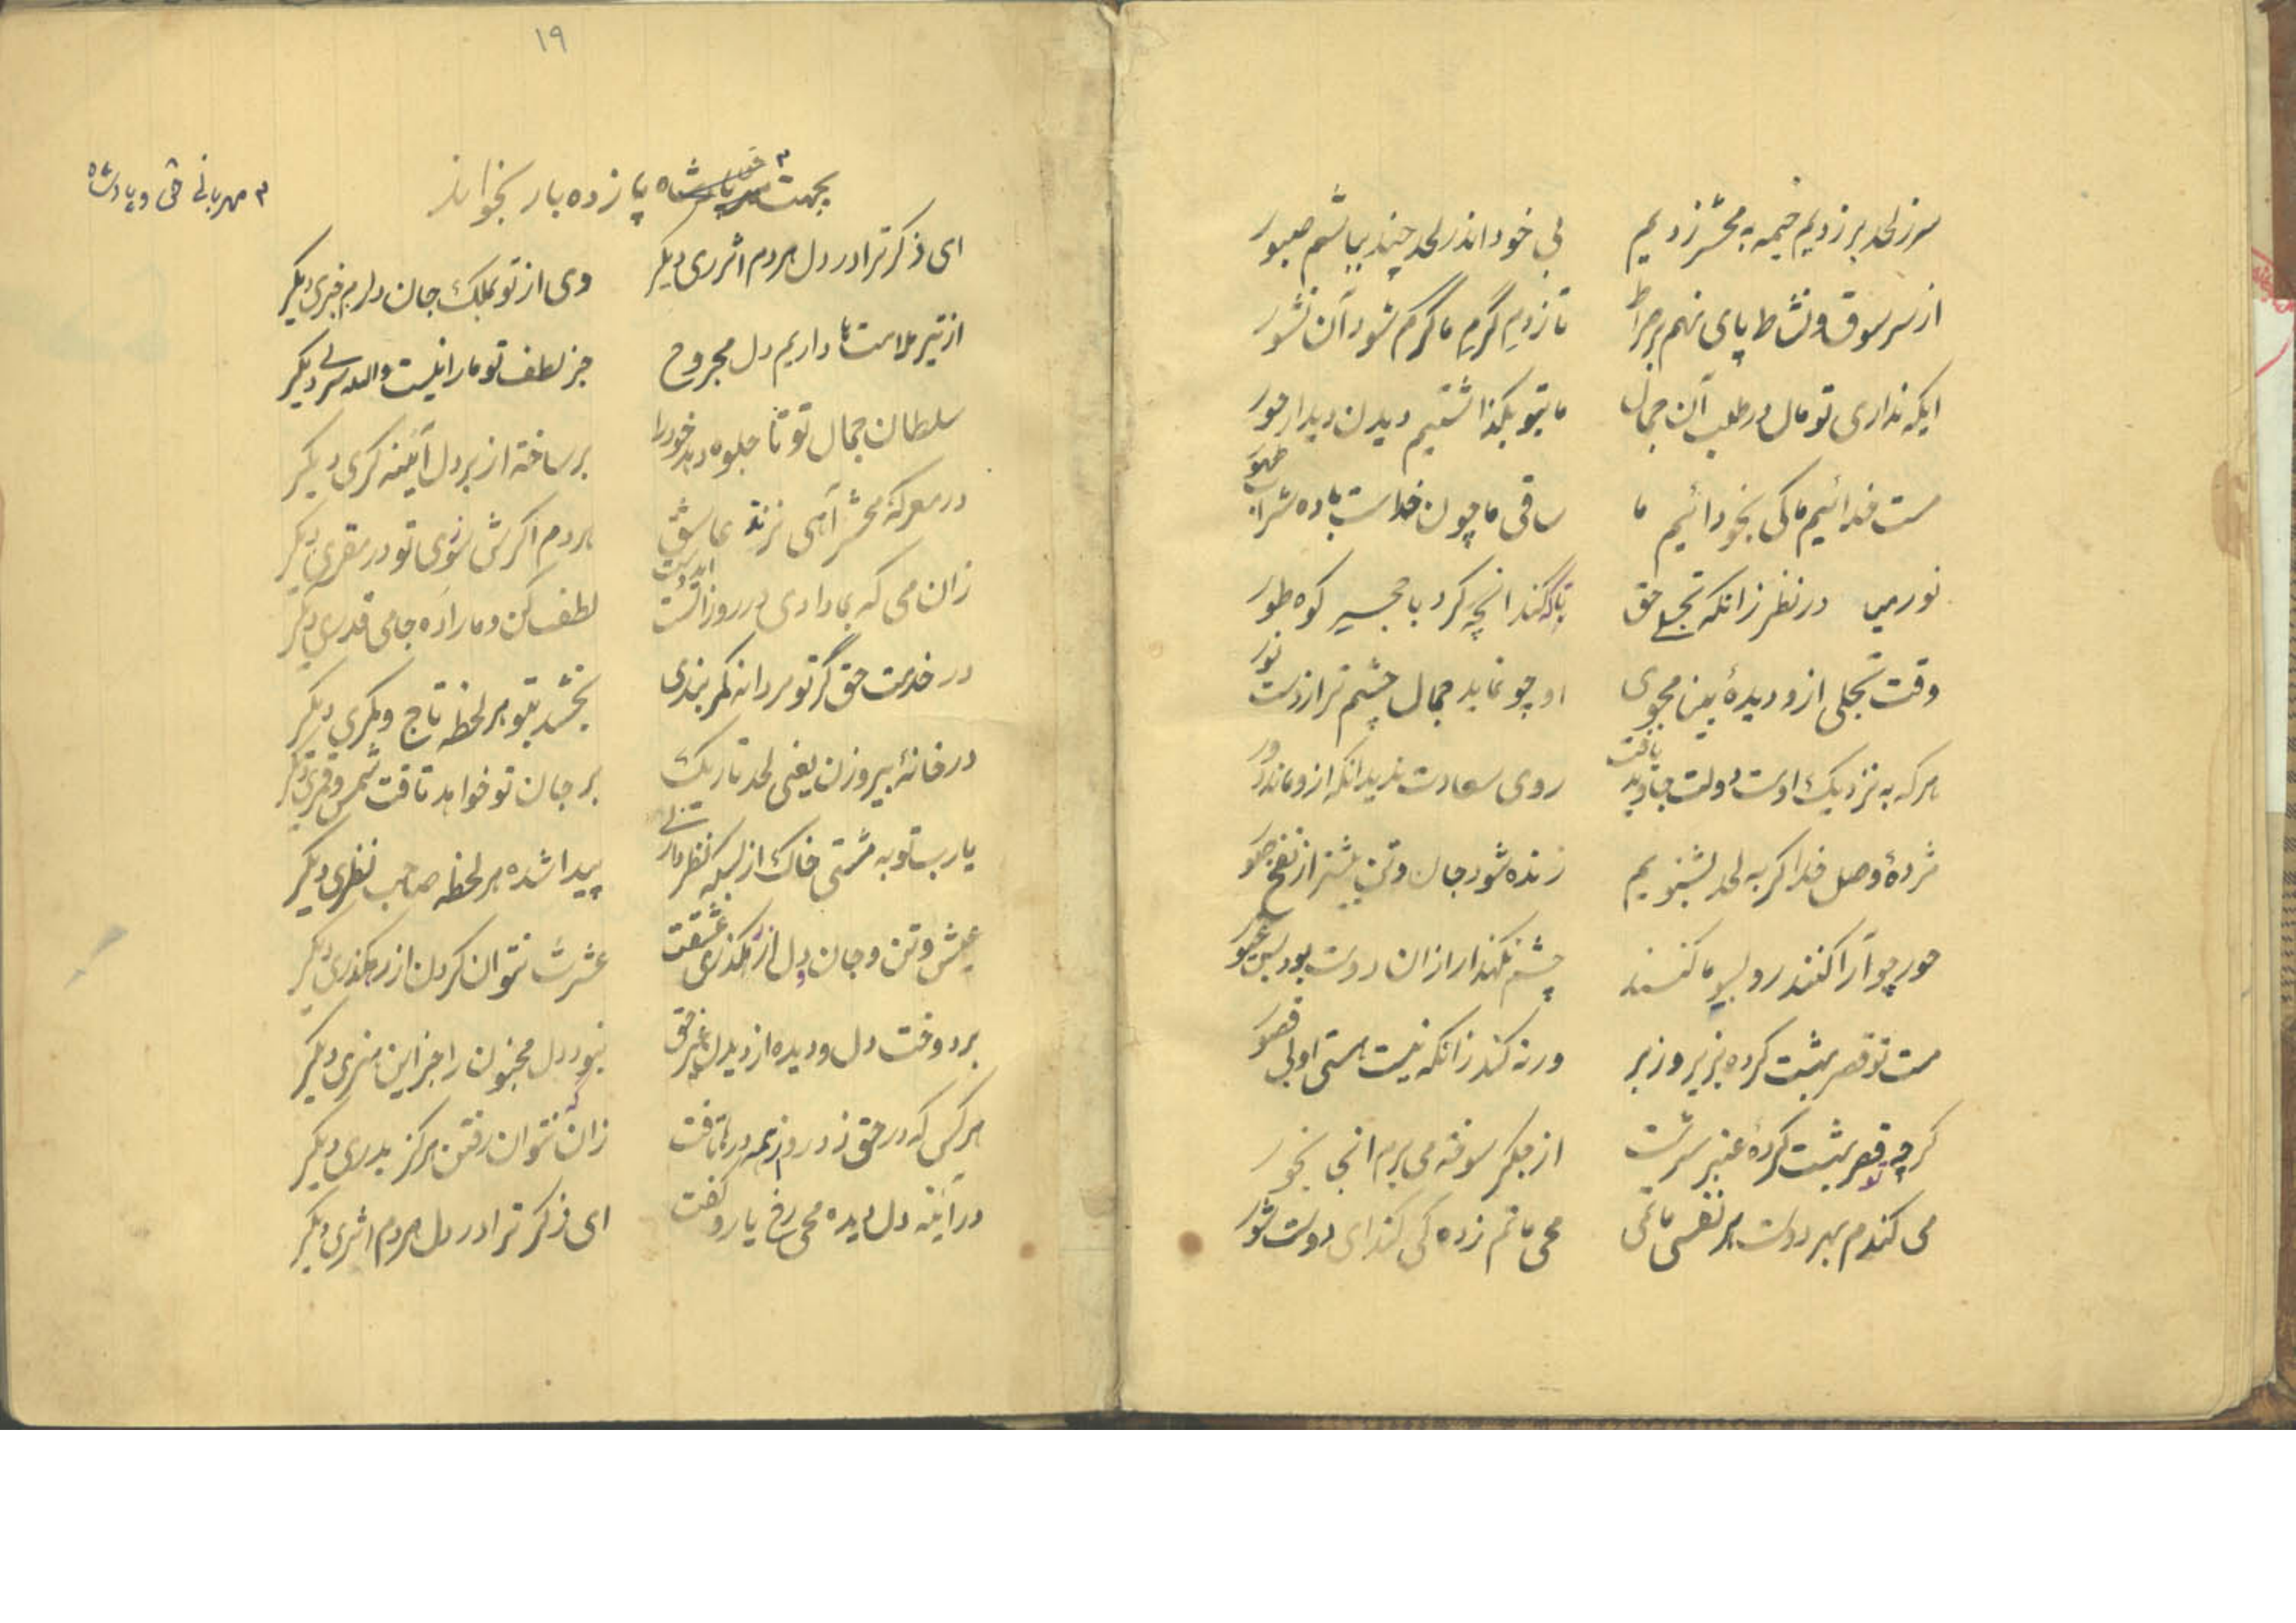 سر ز لحد بر زدیم خیمه به محشر زدیم بی خود اندر لحد چند بباشم صبور
از سر سوق و نشاط پای نهم بر صراط تا زدم گرم ما گرم شود آن نشور
ایکه نداری تو مال در طلب آن جمال ما بتو بگذاشتیم دیدن دیدار حور
مست خدائیم ما کی بخود ائیم ما ساقی ما چون خداست باده شرابٌ طهور
نور در نظر زانکه تجلی حق با که کند انچه کرد با کوه طور
وقت تجلی ازو دیدهٔ بین مجوی او چو نماید جمال چشم ترا زوست نور
هر که به نزدیک اوست دولت جاوید یافت روی سعادت ندید انکه ازو ماند دور
مژدهٔ وصل خدا گر به لحد بشنویم زنده شود جان و تن بیشتر از نفخ صور
حور چو آرا کنند رو بسوی ما کنند چشم نگهدار ازان دوست بود بس غیور
مست تو قصر بهشت کرده بزیر و زبر ورنه کند زانکه نیست هستی او بی قصور
گر چه تو قصر بهشت کردهٔ عنبر سرشت از جگر سوخته می برم انجا بخور
می کندم بهر دوست هر نفسی ماتمی محی ماتم زده کی کند ای دوست شور
۱۹
بجهت پانزده بار بخواند
۳ مهربانی حق و پادشاه
ای ذکر ترا در دل هر دم اثری دیگر وی از تو بملک جان دارم خبری دیگر
از تیر ملامت ما داریم دل مجروح جز لطف تو ما را نیست والله سپری دیگر
سلطان جمال تو تا جلوه دهد خود را بر ساخته از بر دل آئینه گری دیگر
در معرکهٔ محشر آهی نزند عاشق هر دم اگرش سوزی تو در سقری دیگر
زان می که بما دادی در روز الست لطف کن و ما را ده جامی قدری دیگر
در خدمت حق گر تو مردانه کمر بندی بخشد بتو هر لحظه تاج و کمری دیگر
در خانهٔ بیروزن یعنی لحد تاریک بر جان تو خواهد تافت شمس و قمری دیگر
یا رب تو به مشتی خاک از بسکه نظر داری پیدا شده هر لحظه صاحب نظری دیگر
عیش و تن و جان و دل از رهگذری عشقت عشرت نتوان کردن از رهگذری دیگر
بر دوخت دل و دیده از دیدن غیر حق نبود دل مجنون را جز این هنری دیگر
هر کس که در حق زد روز همه در بتافت زان در نتوان رفتن هرگز بدری دیگر
در آئینه دل دیده محی رخ یار و گفت ای ذکر ترا در دل هر دم اثری دیگر